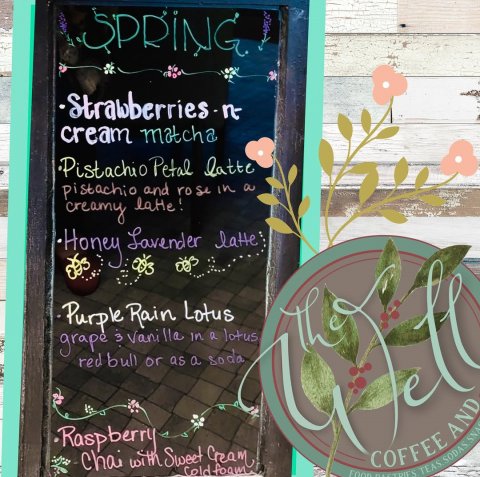 SPRING
·Strawberries-n-
cream matcha
·Pistachio Petal latte
pistachio and rose in a
creamy latte!
·Honey Lavender latte
·Purple Rain Lotus
grape & vanilla in a lotus,
red bull or as a soda
·Raspberry
Chai with Sweet Cream
Cold foam
The
Well
COFFEE AND
FOOD, PASTRIES, TEAS, SODAS,